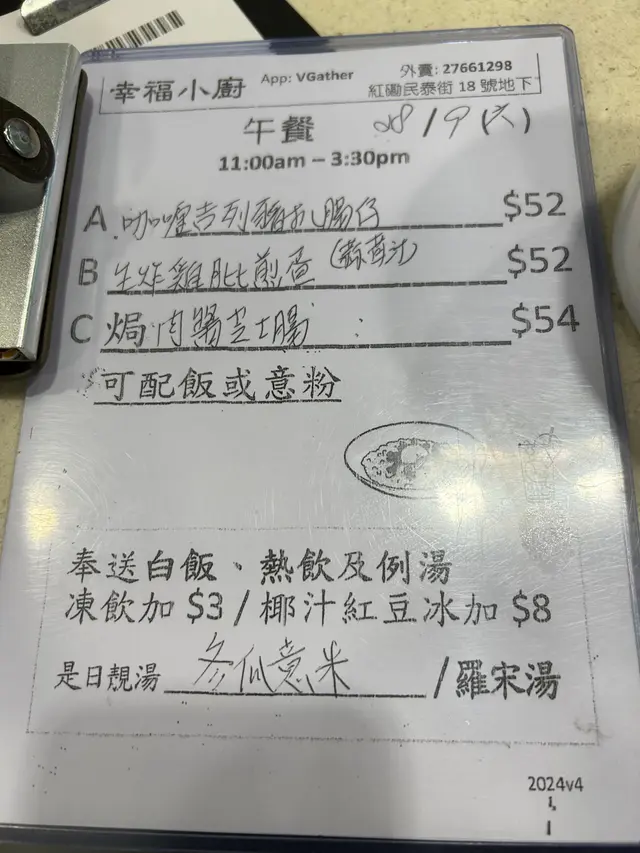 幸福小廚 App: VGather 外賣: 27661298
紅磡民泰街 18 號地下
午餐 28/9 (六)
11:00am – 3:30pm
A 咖喱吉列豬扒腸仔 $52
B 生炸雞肶煎蛋 (蒜茸汁) $52
C 焗肉醬芝士腸 $54
可配飯或意粉
奉送白飯、熱飲及例湯
凍飲加 $3 / 椰汁紅豆冰加 $8
是日靚湯 冬瓜薏米 / 羅宋湯
2024v4